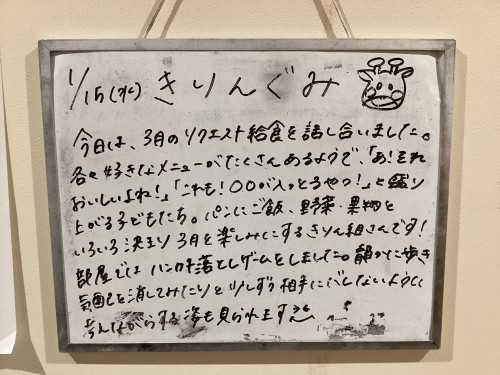 1/15(水) きりんぐみ
今日は、3月のリクエスト給食を話し合いました。
各々好きなメニューがたくさんあるようで、「あ!それ
おいしいよね!」「これも!〇〇が入ってるやつ!」と盛り
上がる子どもたち。パンにご飯、野菜・果物と
いろいろ決まり3月を楽しみにするきりん組さんです!
部屋では ハンカチ落としゲームをしました。静かに歩き
気配を消してみたりと少しずつ相手にバレないように
考えながらする姿も見られます